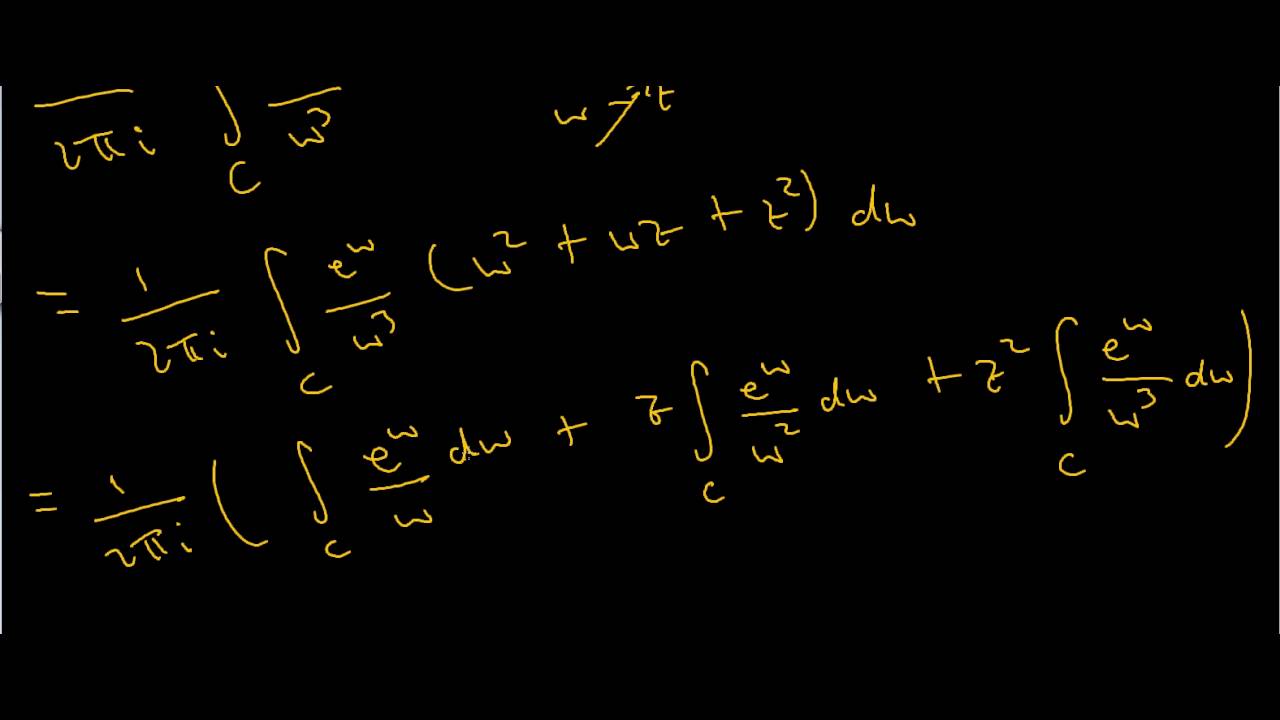 2πi ∫_C w³ w z
= 1/(2πi) ∫_C e^w/w³ (w² + wz + z²) dw
= 1/(2πi) ( ∫_C e^w/w dw + z ∫_C e^w/w² dw + z² ∫_C e^w/w³ dw )